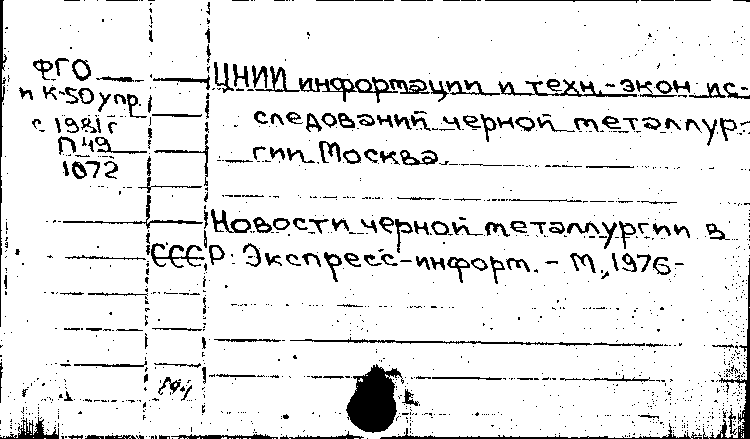 ФГО
п К-50 упр.
с 1981 г
П 49
1072
ЦНИИ информации и техн.-экон. ис-
следований черной металлур-
гии Москва.
Новости черной металлургии в
СССР: Экспресс-информ. - М., 1976-
894